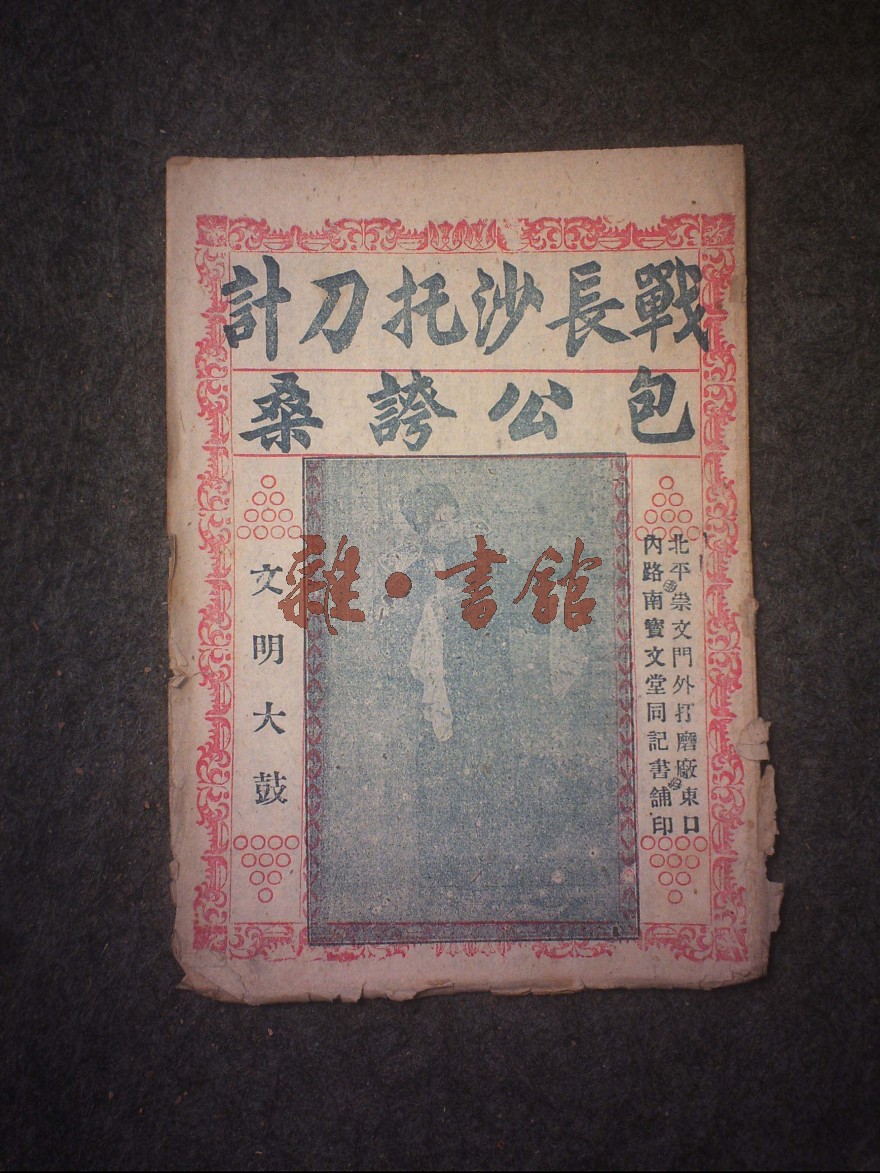 戰長沙托刀計
包公誇桑
北平崇文門外打磨廠東口
內路南寶文堂同記書舖印
文明大鼓
雜·書館